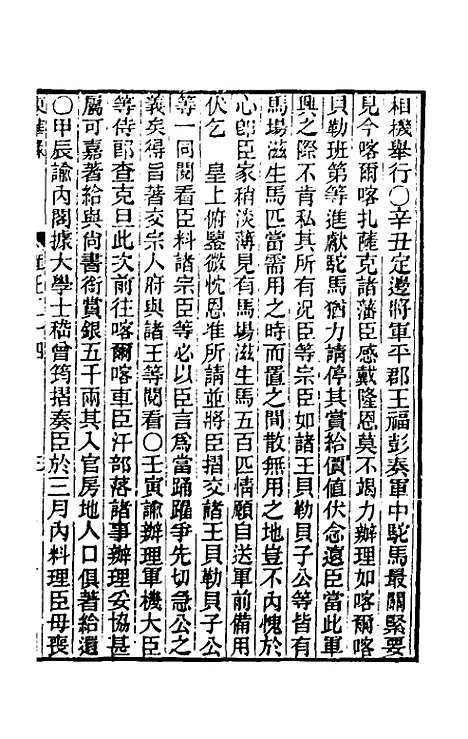 相機舉行○辛丑定邊將軍平郡王福彭奏軍中駝馬最關緊要
見今喀爾喀扎薩克諸藩臣感戴隆恩莫不竭力辦理如喀爾喀
貝勒班第等進獻駝馬猶力請停其賞給價値伏念遠臣當此軍
興之際不肯私其所有况臣等宗臣如諸王貝勒貝子公等皆有
馬場滋生馬匹當需用之時而置之閒散無用之地豈不內愧於
心卽臣家稍淡薄見有馬場滋生馬五百匹情願自送軍前備用
伏乞　皇上俯鑒微忱恩准所請並將臣摺交諸王貝勒貝子公
等一同閱看臣料諸宗臣等必以臣言爲當踊躍爭先切急公之
義矣得旨著交宗人府與諸王等閱看○壬寅諭辦理軍機大臣
等侍郎查克旦此次前往喀爾喀車臣汗部落諸事辦理妥協甚
屬可嘉著給與尙書銜賞銀五千兩其入官房地人口俱著給還
○甲辰諭內閣據大學士嵇曾筠摺奏臣於三月內料理臣母喪
東華錄